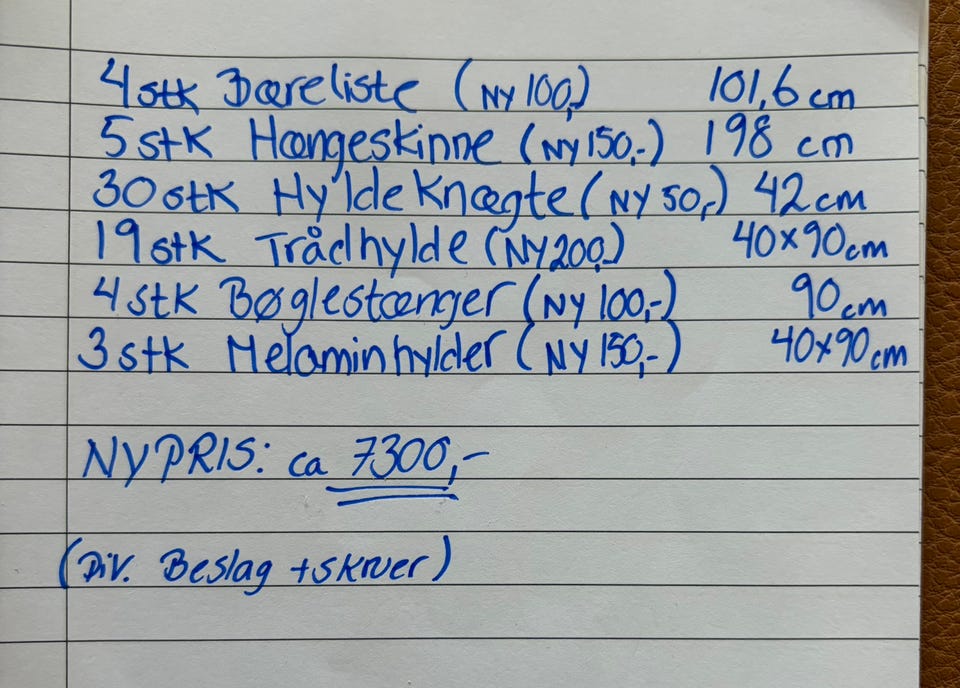 4 stk Bæreliste (NY 100,-) 101,6 cm
5 stk Hængeskinne (NY 150,-) 198 cm
30 stk Hyldeknægte (NY 50,-) 42 cm
19 stk Trådhylde (NY 200,-) 40x90 cm
4 stk Bøglestænger (NY 100,-) 90 cm
3 stk Melaminhylder (NY 150,-) 40x90 cm
NYPRIS: ca 7300,-
(Div. Beslag + skruer)